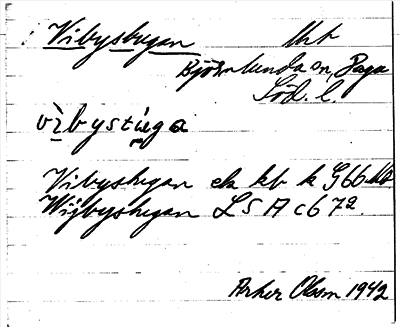 Vibystugan
Björnlunda sn, Daga
Söd. l.
vibystuga
Vibystugan ek kb k G66
Wijbystugan LSA c6 72.
Olson 1942